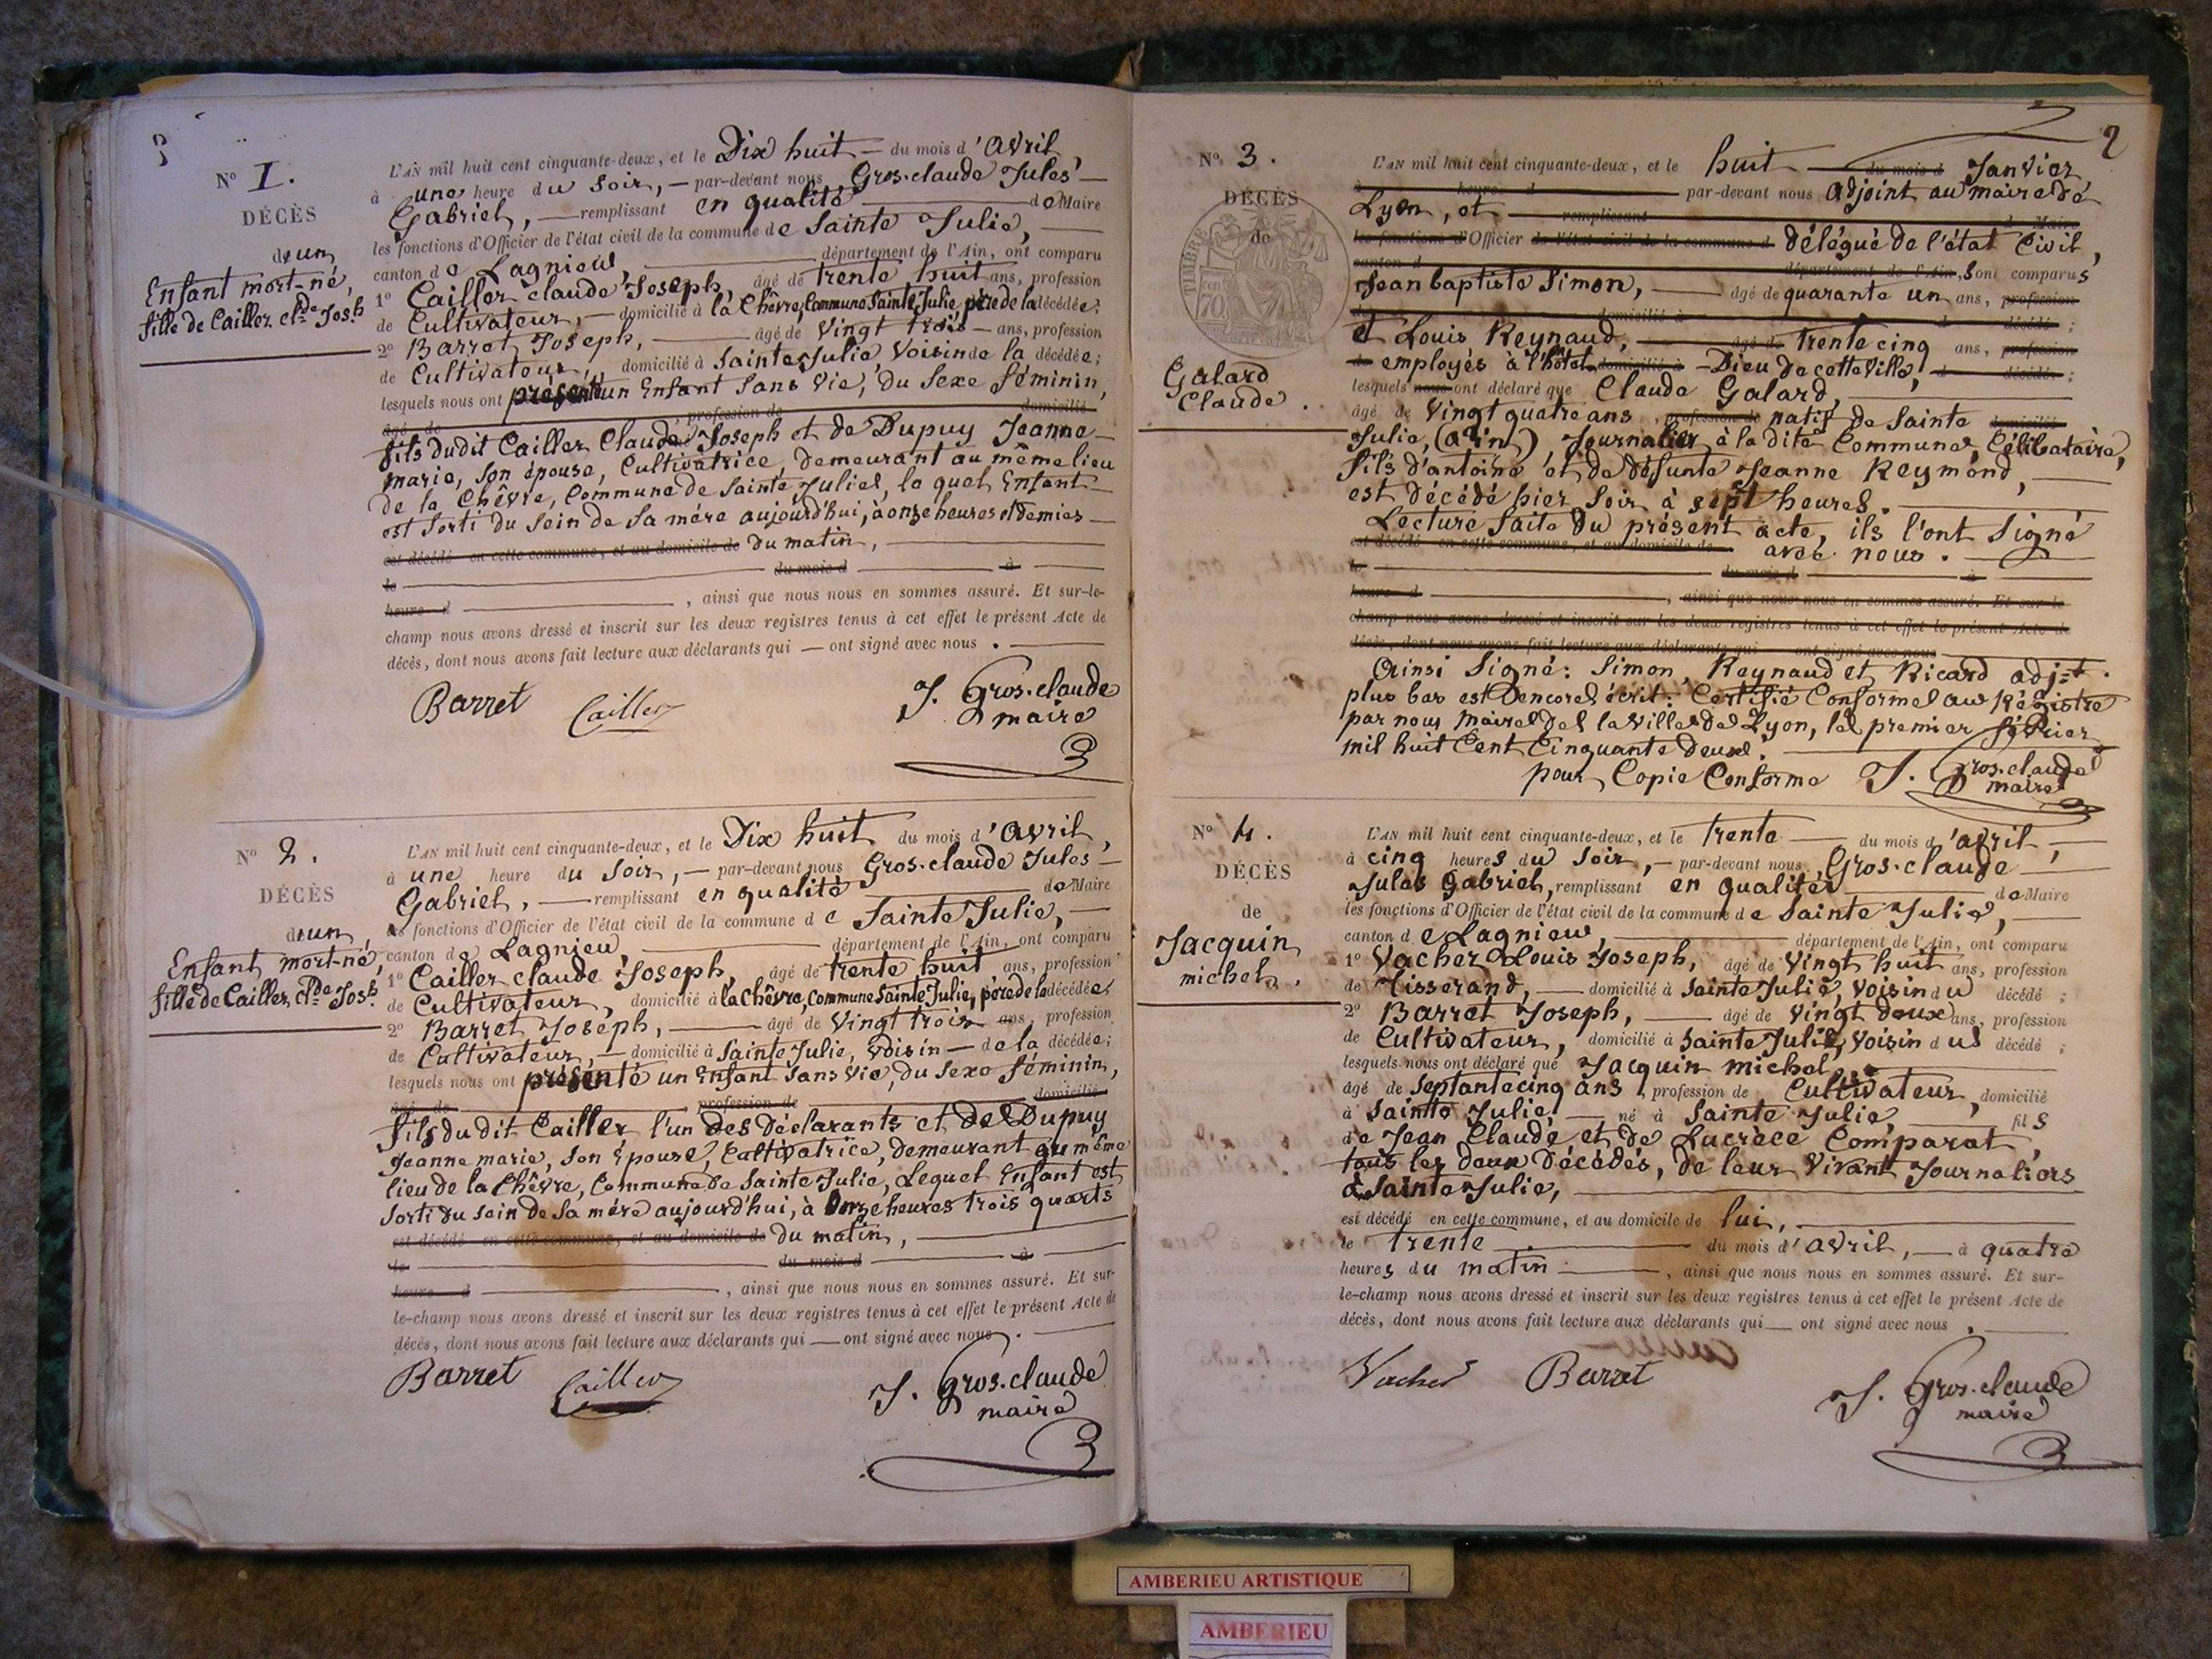 N° 1.
DÉCÈS
d'un
Enfant mort-né,
fille de Cailler Cl.de Jos.h
L'AN mil huit cent cinquante-deux, et le Dix huit — du mois d'Avril,
à une heure du soir, — par-devant nous Gros-claude Jules
Gabriel, — remplissant en qualité de Maire
les fonctions d'Officier de l'état civil de la commune de Sainte Julie,
canton de Lagnieu, département de l'Ain, ont comparu
1° Cailler Claude Joseph, âgé de trente huit ans, profession
de Cultivateur, — domicilié à la Chèvre, Commune Sainte Julie, père de la décédée;
2° Barret Joseph, âgé de vingt trois — ans, profession
de Cultivateur, domicilié à Sainte Julie Voisin de la décédée;
lesquels nous ont présenté un Enfant sans vie, du sexe féminin,
âgé de profession de domicilié
fils dudit Cailler Claude Joseph et de Dupuy Jeanne
marie, son épouse, Cultivatrice, demeurant au même lieu
de la Chèvre, Commune de Sainte Julie, le quel Enfant
est sorti du sein de sa mère aujourd'hui, à onze heures et demies
est décédé en cette commune, et au domicile de du matin,
le du mois d à
heure d , ainsi que nous nous en sommes assuré. Et sur-le-
champ nous avons dressé et inscrit sur les deux registres tenus à cet effet le présent Acte de
décès, dont nous avons fait lecture aux déclarants qui — ont signé avec nous.
Barret Cailler J. Gros-claude
maire
N° 2.
DÉCÈS
d'un
Enfant mort-né,
fille de Cailler Cl.de Jos.h
L'AN mil huit cent cinquante-deux, et le Dix huit du mois d'Avril,
à une heure du soir, — par-devant nous Gros-claude Jules
Gabriel, — remplissant en qualité de Maire
les fonctions d'Officier de l'état civil de la commune de Sainte Julie,
canton de Lagnieu, département de l'Ain, ont comparu
1° Cailler Claude Joseph, âgé de trente huit ans, profession
de Cultivateur, domicilié à la Chèvre, Commune Sainte Julie, père de la décédée;
2° Barret Joseph, — âgé de vingt trois ans, profession
de Cultivateur, — domicilié à Sainte Julie, Voisin — de la décédée;
lesquels nous ont présenté un Enfant sans vie, du sexe féminin,
âgé de profession de domicilié
fils du dit Cailler l'un des déclarants et de Dupuy
Jeanne marie, son Epouse, Cultivatrice, demeurant au même
lieu de la Chèvre, Commune de Sainte Julie, Lequel Enfant est
sorti du sein de sa mère aujourd'hui, à onze heures trois quarts
est décédé en cette commune, et au domicile de du matin,
le du mois d à
heure d , ainsi que nous nous en sommes assuré. Et sur-
le-champ nous avons dressé et inscrit sur les deux registres tenus à cet effet le présent Acte de
décès, dont nous avons fait lecture aux déclarants qui — ont signé avec nous.
Barret Cailler J. Gros-claude
maire
2
N° 3.
DÉCÈS
de
TIMBRE
70
Galard
Claude.
L'AN mil huit cent cinquante-deux, et le huit du mois d Janvier,
à heure d par-devant nous Adjoint au maire de
Lyon, et remplissant d Maire
les fonctions d'Officier de l'état civil de la commune d délégué de l'état Civil,
canton d département de l'Ain, sont comparus
Jean baptiste Simon, — âgé de quarante un ans, profession
de domicilié à d décédé;
et Louis Reynaud, âgé de trente cinq ans, profession
de employés à l'hôtel domicilié à -Dieu de cette Ville, d décédé;
lesquels nous ont déclaré que Claude Galard,
âgé de vingt quatre ans, profession de natif de Sainte domicilié
Julie, (Ain) Journalier à la dite Commune, Célibataire,
fils d'antoine et de défunte Jeanne Reymond,
est décédé hier soir à sept heures.
Lecture faite du présent acte, ils l'ont signé
est décédé en cette commune, et au domicile de avec nous.
le du mois d à
heure d , ainsi que nous nous en sommes assuré. Et sur-le
champ nous avons dressé et inscrit sur les deux registres tenus à cet effet le présent Acte de
décès, dont nous avons fait lecture aux déclarants qui ont signé avec nous
Ainsi signé: Simon, Reynaud et Ricard adj.t.
plus bas est encore écrit: Certifié Conforme au Régistre
par nous maire de la ville de Lyon, le premier février
mil huit Cent Cinquante deux.
pour Copie Conforme J. Gros-claude
maire
N° 4.
DÉCÈS
de
Jacquin
michel.
L'AN mil huit cent cinquante-deux, et le trente — du mois d'avril,
à cinq heures du soir, — par-devant nous Gros-claude
Jules Gabriel, remplissant en qualité de Maire
les fonctions d'Officier de l'état civil de la commune de Sainte Julie,
canton de Lagnieu, département de l'Ain, ont comparu
1° Vacher Louis Joseph, âgé de Vingt huit ans, profession
de Tisserand, — domicilié à Sainte Julie, Voisin du décédé;
2° Barret Joseph, — âgé de vingt deux ans, profession
de Cultivateur, domicilié à Sainte Julie, Voisin du décédé;
lesquels nous ont déclaré que Jacquin michel,
âgé de Septante cinq ans, profession de Cultivateur, domicilié
à Sainte Julie, — né à Sainte Julie, fils
de Jean Claude et de Lucrèce Comparat,
tous les deux décédés, de leur vivant Journaliers
à Sainte Julie,
est décédé en cette commune, et au domicile de lui,
le trente du mois d'avril, — à quatre
heures du matin — , ainsi que nous nous en sommes assuré. Et sur-
le-champ nous avons dressé et inscrit sur les deux registres tenus à cet effet le présent Acte de
décès, dont nous avons fait lecture aux déclarants qui — ont signé avec nous.
Vacher Barret J. Gros-claude
maire
AMBERIEU ARTISTIQUE
AMBERIEU